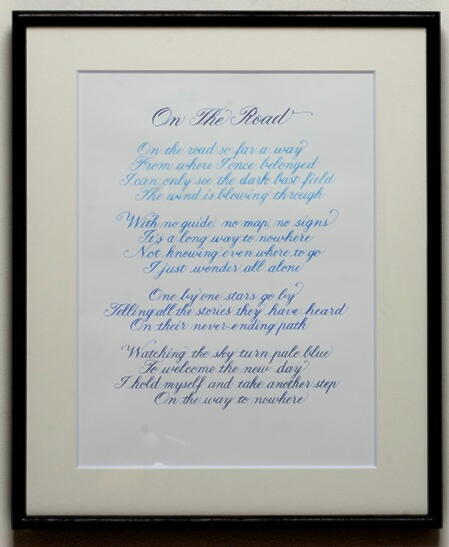 On The Road
On the road so far a way
From where I once belonged
I can only see the dark bast field
The wind is blowing through
With no guide, no map, no signs
It's a long way to nowhere
Not knowing even where to go
I just wonder all alone
One by one stars go by
Telling all the stories they have heard
On their never-ending path
Watching the sky turn pale blue
To welcome the new day
I hold myself and take another step
On the way to nowhere